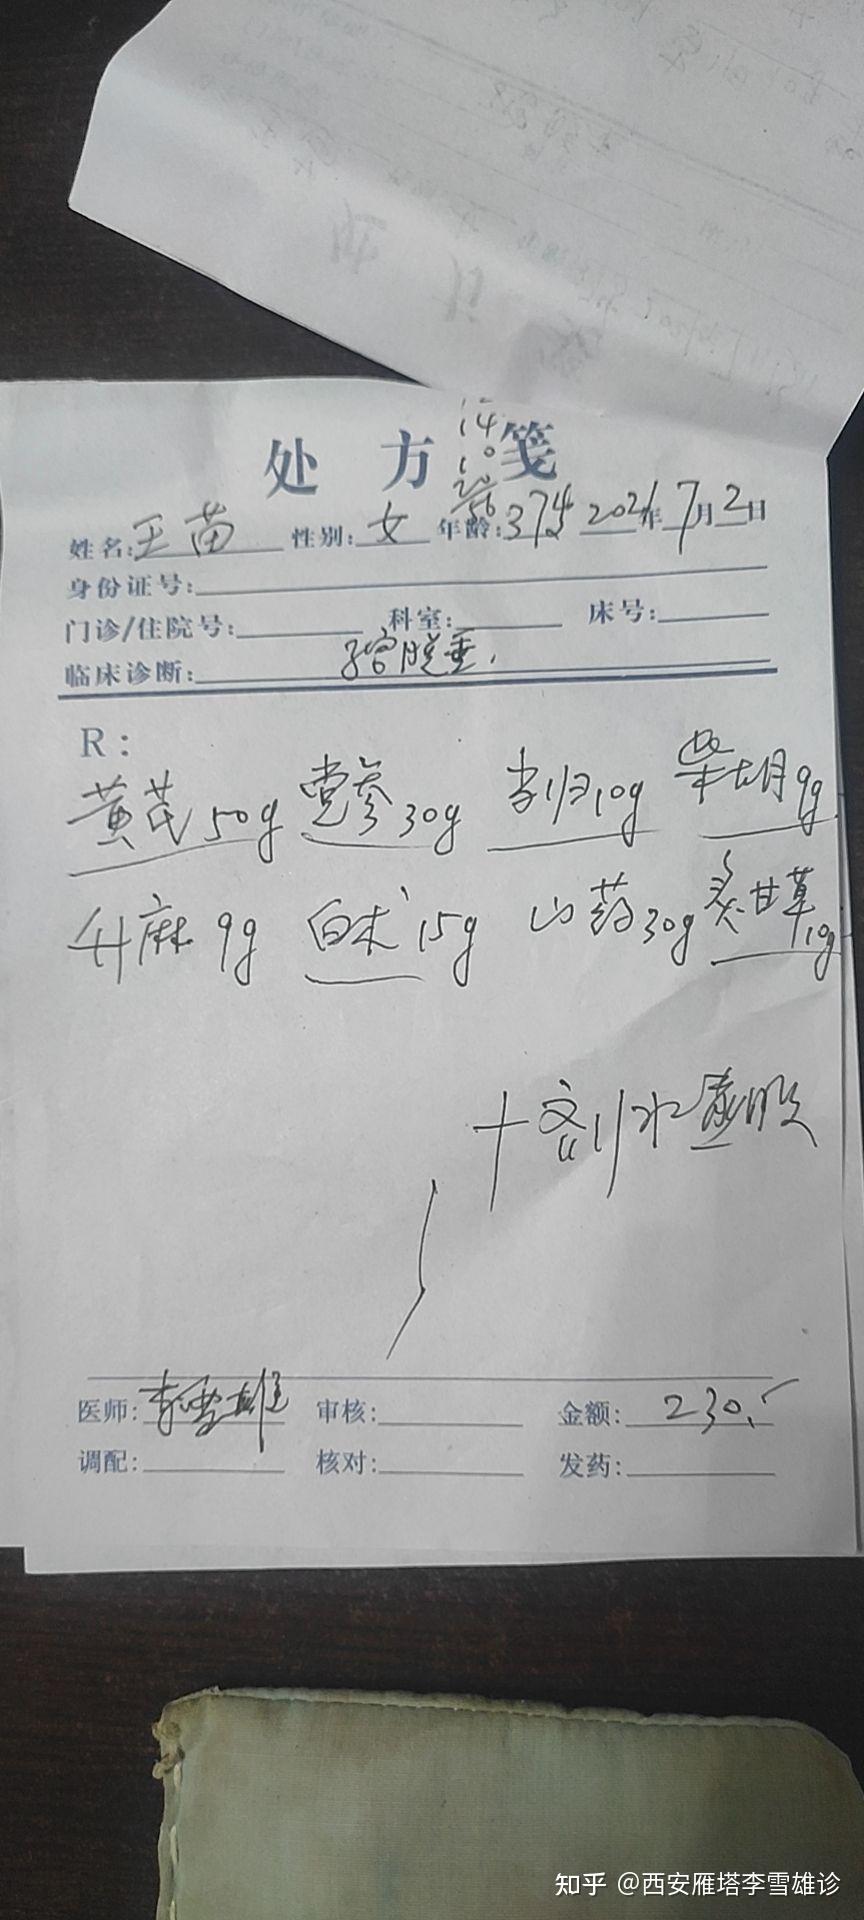 14
10
20
56
处方笺
姓名:王苗 性别:女 年龄:37岁 2021年7月2日
身份证号:
门诊/住院号: 科室: 床号:
临床诊断: 子宫脱垂.
R:
黄芪50g 党参30g 当归10g 柴胡9g
升麻9g 白术15g 山药30g 炙甘草10g
十剂水煎服
医师:李雪雄 审核: 金额: 230.
调配: 核对: 发药:
知乎 @西安雁塔李雪雄诊